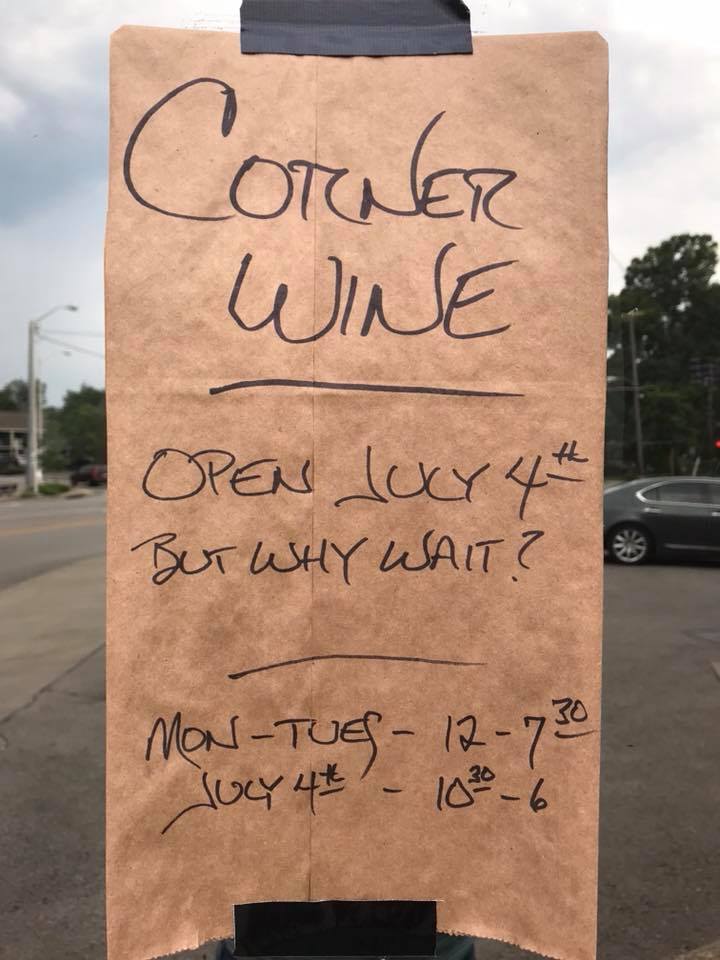 CORNER
WINE
OPEN JULY 4th
BUT WHY WAIT?
MON-TUES - 12-7 30
JULY 4th - 10 30 - 6